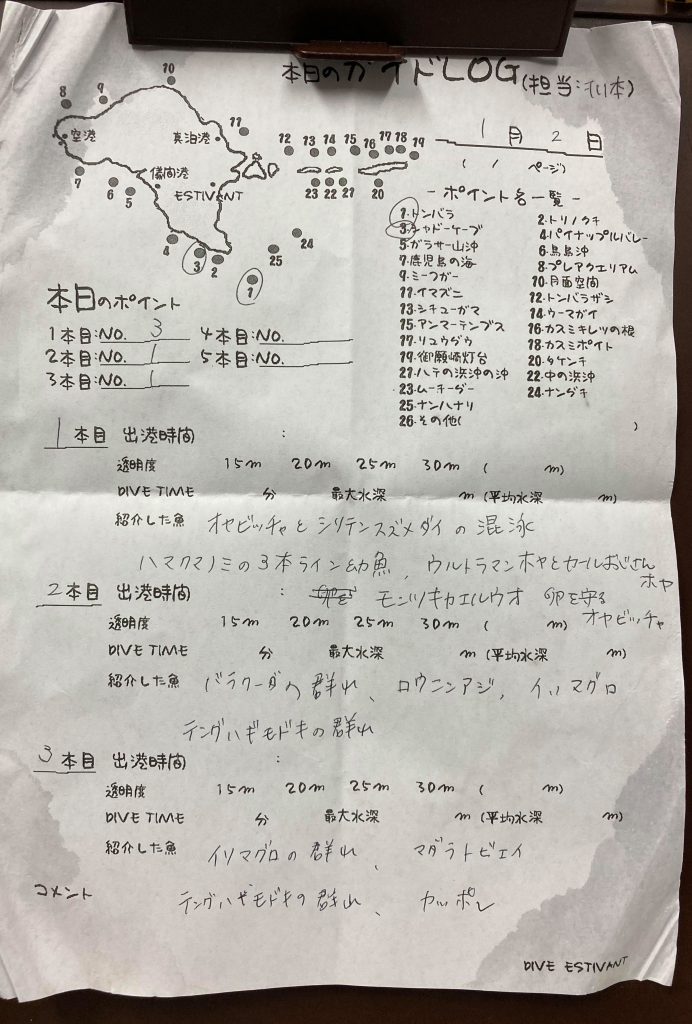 本日のガイドLOG(担当: 本)
1月 2日
( / ページ)
10
8
9
空港
真泊港
11
12 13 14 15 16 17 18 19
儀間港
7
6
5
ESTIVANT
23 22 21
20
4
3
2
24
25
1
- ポイント名一覧 -
1.トンバラ 2.トリノクチ
3.シャドーケーブ 4.パイナップルバレー
5.ガラサー山沖 6.鳥島沖
7.鹿児島の海 8.プレアクエリアム
9.ミーフガー 10.月面空間
11.イマズニ 12.トンバラザシ
13.シチューガマ 14.ウーマガイ
15.アンマーテンプス 16.カスミキレツの根
17.リュウグウ 18.カスミポイト
19.御願崎灯台 20.タケンチ
21.ハテの浜沖の沖 22.中の浜沖
23.ムーチーグー 24.ナングチ
25.ナンハナリ
26.その他( )
本日のポイント
1本目:NO. 3 4本目:NO.
2本目:NO. 1 5本目:NO.
3本目:NO. 1
1本目 出港時間 :
透明度 15m 20m 25m 30m ( m)
DIVE TIME 分 最大水深 m (平均水深 m)
紹介した魚 オヤビッチャとシリテンスズメダイの混泳
ハマクマノミの3本ライン幼魚、ウルトラマンホヤとカールおじさんホヤ
モンツキカエルウオ 卵を守るオヤビッチャ
2本目 出港時間 :
透明度 15m 20m 25m 30m ( m)
DIVE TIME 分 最大水深 m (平均水深 m)
紹介した魚 バラクーダの群れ、ロウニンアジ、イソマグロ
テングハギモドキの群れ
3本目 出港時間 :
透明度 15m 20m 25m 30m ( m)
DIVE TIME 分 最大水深 m (平均水深 m)
紹介した魚 イソマグロの群れ、マダラトビエイ
コメント テングハギモドキの群れ、カッポレ
DIVE ESTIVANT